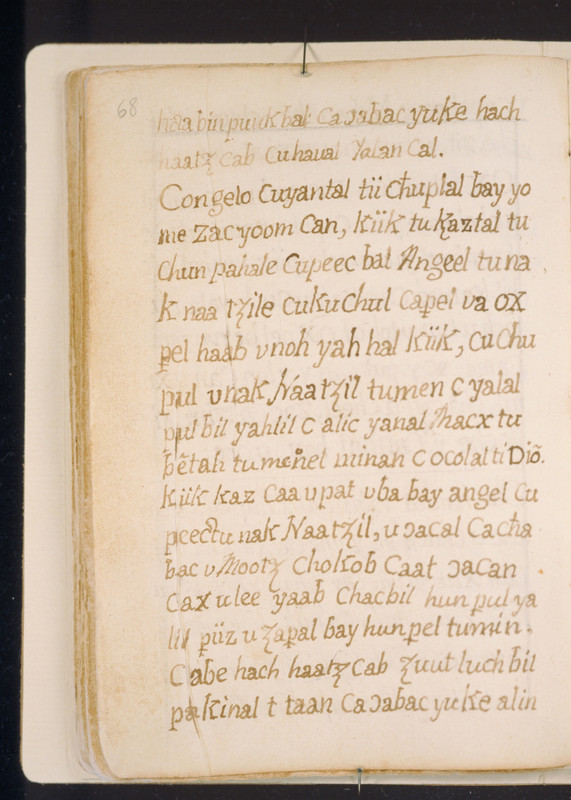 68
haabin puuk bak Caɔabac yuke hach
haatz Cab Cuhaual Yalan Cal.
Congelo Cuyantal tii chuplal bay yo
me Zac yoom Can, Kiik tu Kaztal tu
Chun pahale Cupeec bal Angeel tuna
K naa tzile Cukuchul Capel va ox
ppel haab vnoh yah hal Kiik, Cuchu
pul vnak Naatzil tumen c yalal
pulbil yahlil c alic yanal thacx tu
bētah tumenel minan c ocolal ti Diõ.
Kiik Kaz Caa vpat vba bay angel Cu
peectu nak Naatzil, u ɔacal Cacha
bac v Mootz Chokob Caat ɔacan
Cax u lee yaab Chacbil hunpul ya
lil piiz u zapal bay hunpel tumin.
Cabe hach haatz Cab zuut luchbil
pakinal t taan Caɔabac yuke alin